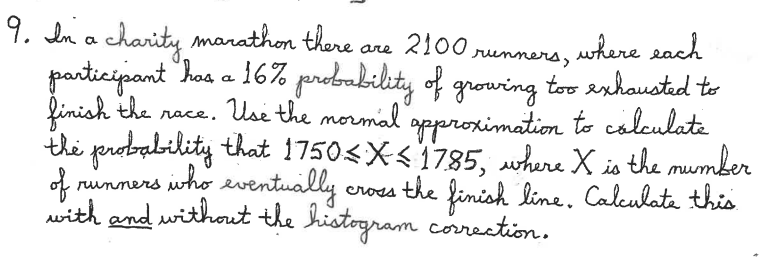 9. In a charity marathon there are 2100 runners, where each
participant has a 16% probability of growing too exhausted to
finish the race. Use the normal approximation to calculate
the probability that 1750≤X≤1785, where X is the number
of runners who eventually cross the finish line. Calculate this
with and without the histogram correction.